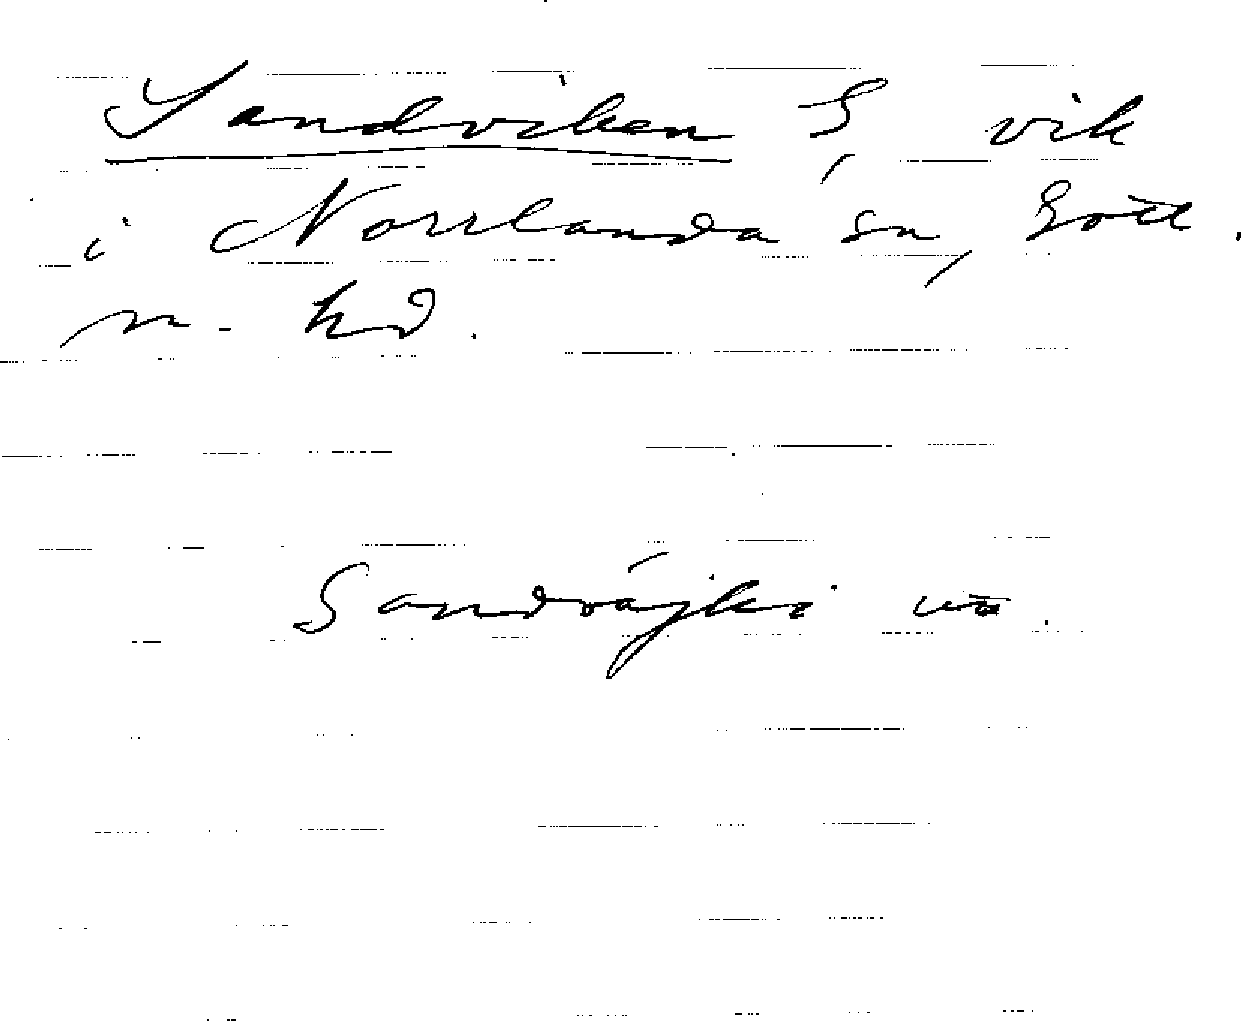 Sandviken S, vik
i Norrlanda sn, Gotl.
n. hd.
Sandvájki